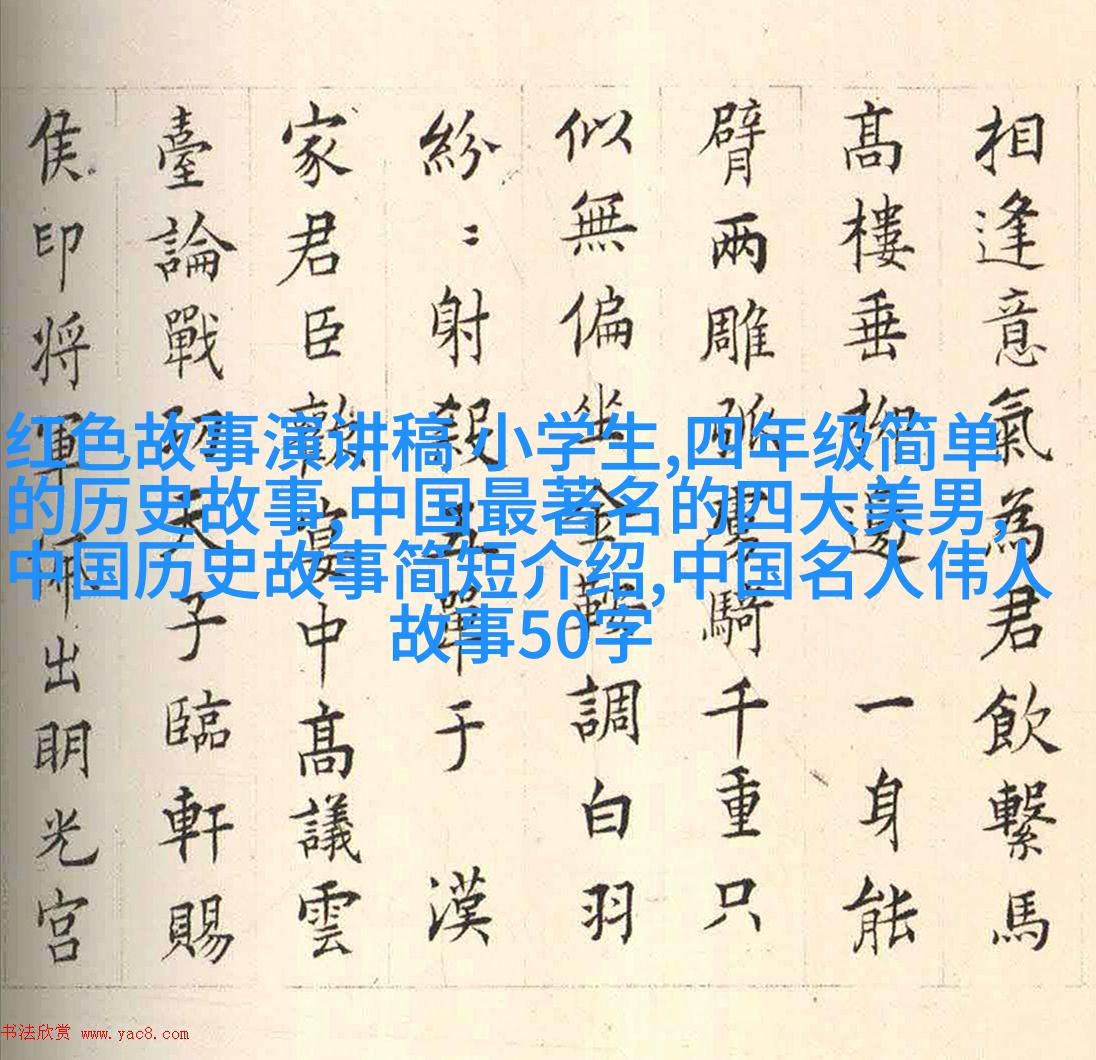 相逢意氣為君飲繫馬
髙樓垂柳邊 一身能
臂兩雕弧虜騎千重只
似無偏坐金鞍調白羽
紛〻射殺五單于 漢
家君臣歡宴中髙議雲
臺論戰功天子臨軒賜
侯印将軍佩出明光宮
红色故事演讲稿 小学生,四年级简单
的历史故事,中国最著名的四大美男,
中国历史故事简短介绍,中国名人伟人
故事50字
书法欣赏 www.yac8.com